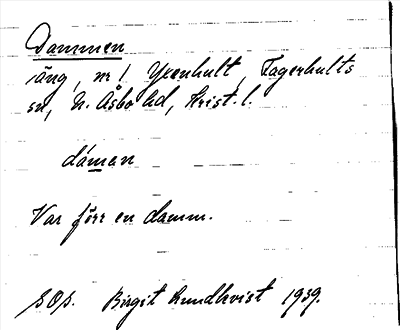 Dammen
äng, nr 1 Yxenhult, Fagerhults
sn, N. Åsbo hd, Krist. l.
dámen
Var förr en damm.
s. o. s. Birgit Lundkvist 1939.